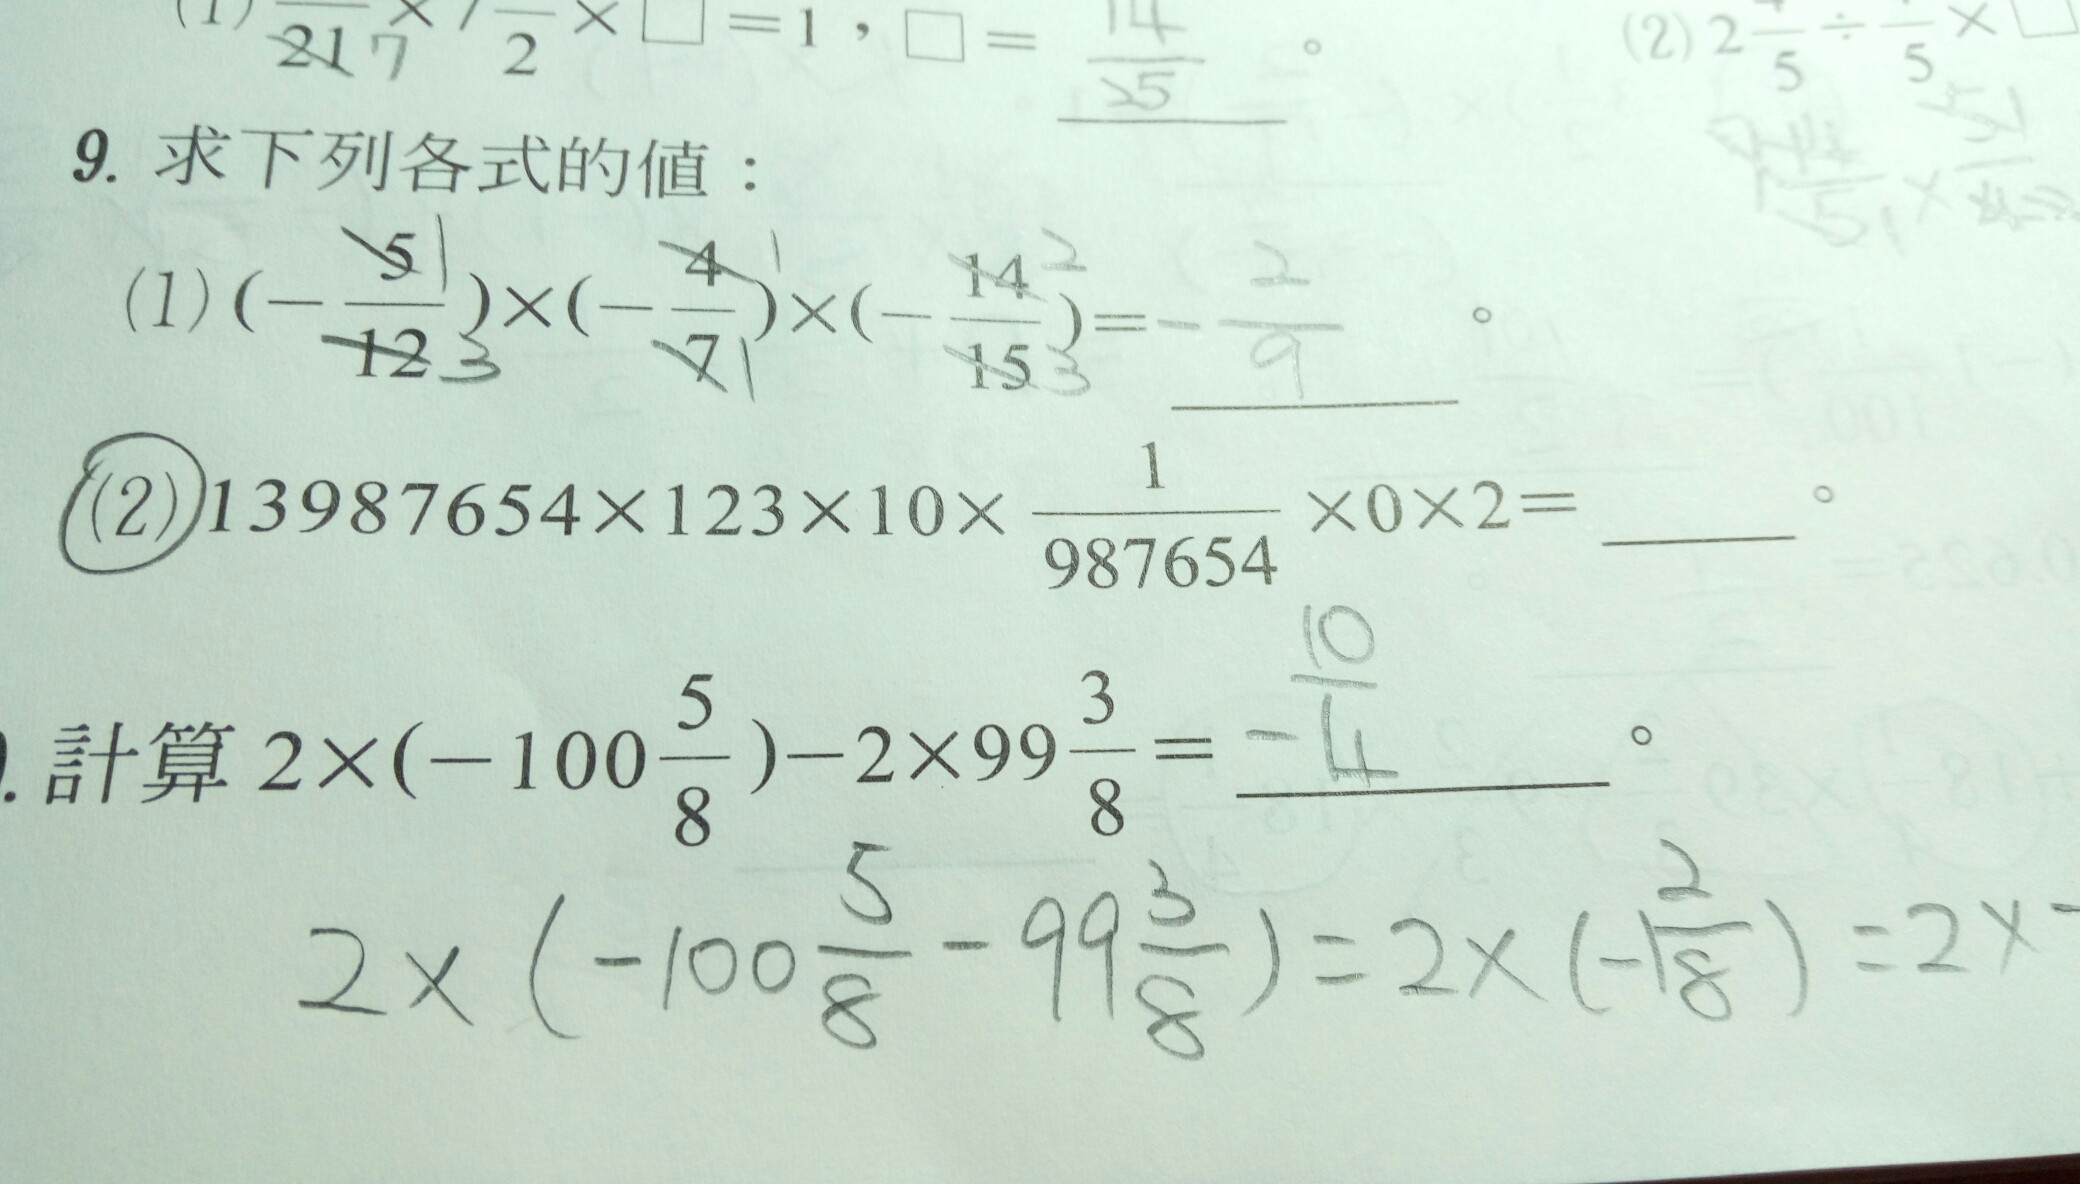 (1) /21 7 × 7 /2 × □ = 1，□ = 14/25 。
(2) 2 /5 ÷ /5 × □
9. 求下列各式的值：
(1) (−5/12)×(−4/7)×(−14/15)= -2/9 。
1 1 2
3 1 3
(2) 13987654×123×10×1/987654×0×2= ____ 。
. 計算 2×(−100 5/8)−2×99 3/8= -10/4 。
2×(-100 5/8 - 99 3/8) = 2×(-1 2/8) = 2×-